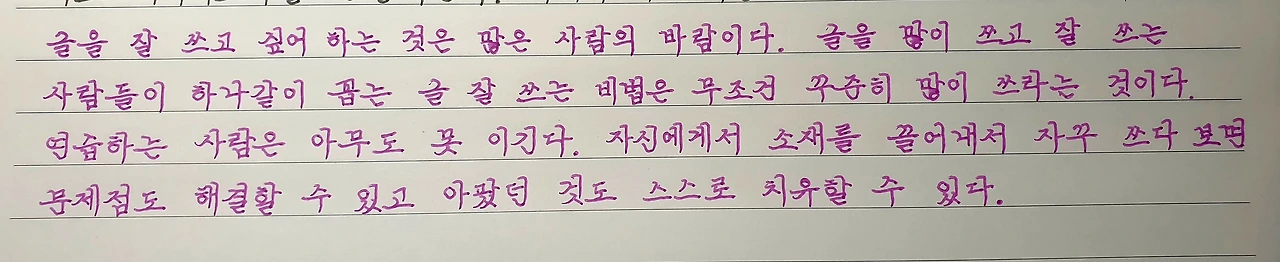 글을 잘 쓰고 싶어 하는 것은 많은 사람의 바람이다. 글을 많이 쓰고 잘 쓰는
사람들이 하나같이 꼽는 글 잘 쓰는 비법은 무조건 꾸준히 많이 쓰라는 것이다.
연습하는 사람은 아무도 못 이긴다. 자신에게서 소재를 끌어내서 자꾸 쓰다 보면
문제점도 해결할 수 있고 아팠던 것도 스스로 치유할 수 있다.